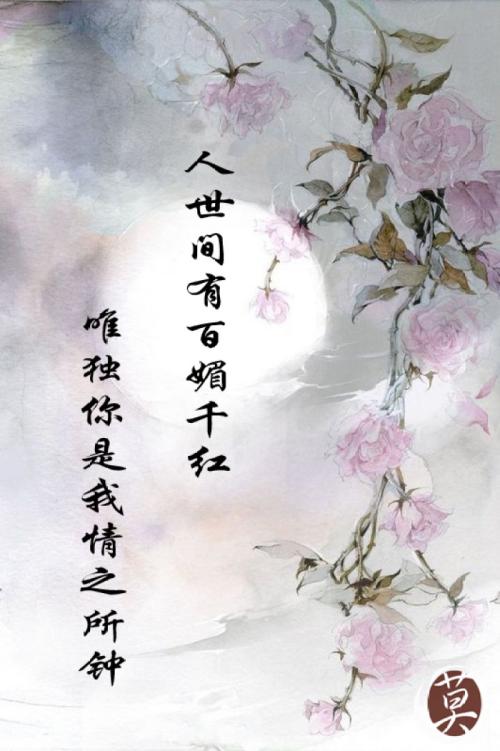 人世间有百媚千红
唯独你是我情之所钟
莫